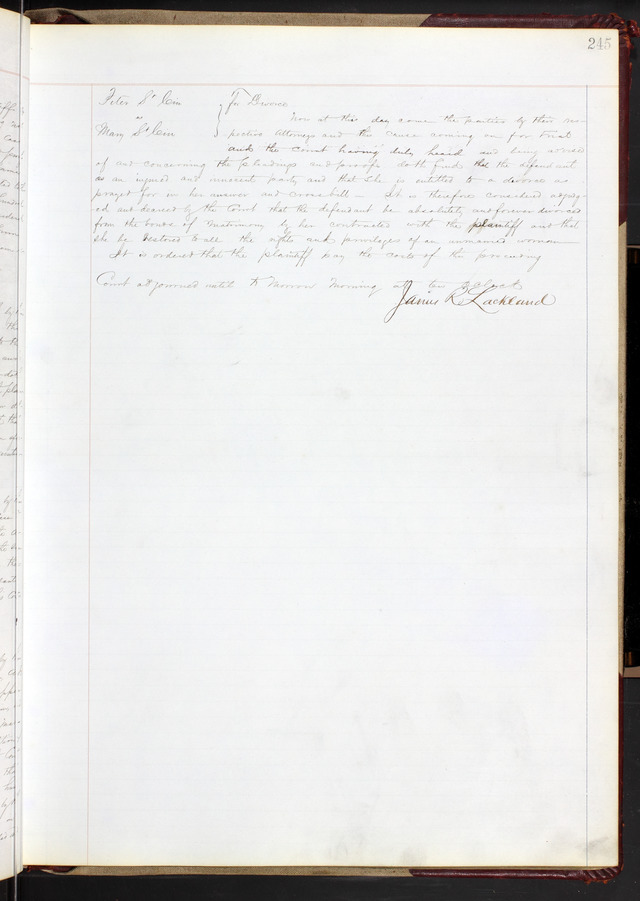 245
Peter St
vs } For Divorce
Mary St
Now at this day come the parties by their res-
pective Attorneys and this cause coming on for trial
and the Court having duly heard and being advised
of and concerning the pleadings and proofs doth find that the defendant
is an injured and innocent party and that she is entitled to a divorce as
prayed for in her answer and crossbill - It is therefore considered adjudg
ed and decreed by the Court that the defendant be absolutely and forever divorced
from the bonds of matrimony by her contracted with the plaintiff and that
she be restored to all the rights and privileges of an unmarried woman
It is ordered that the plaintiff pay the costs of this proceeding
Court adjourned until to morrow morning at ten o'clock
James R Lackland